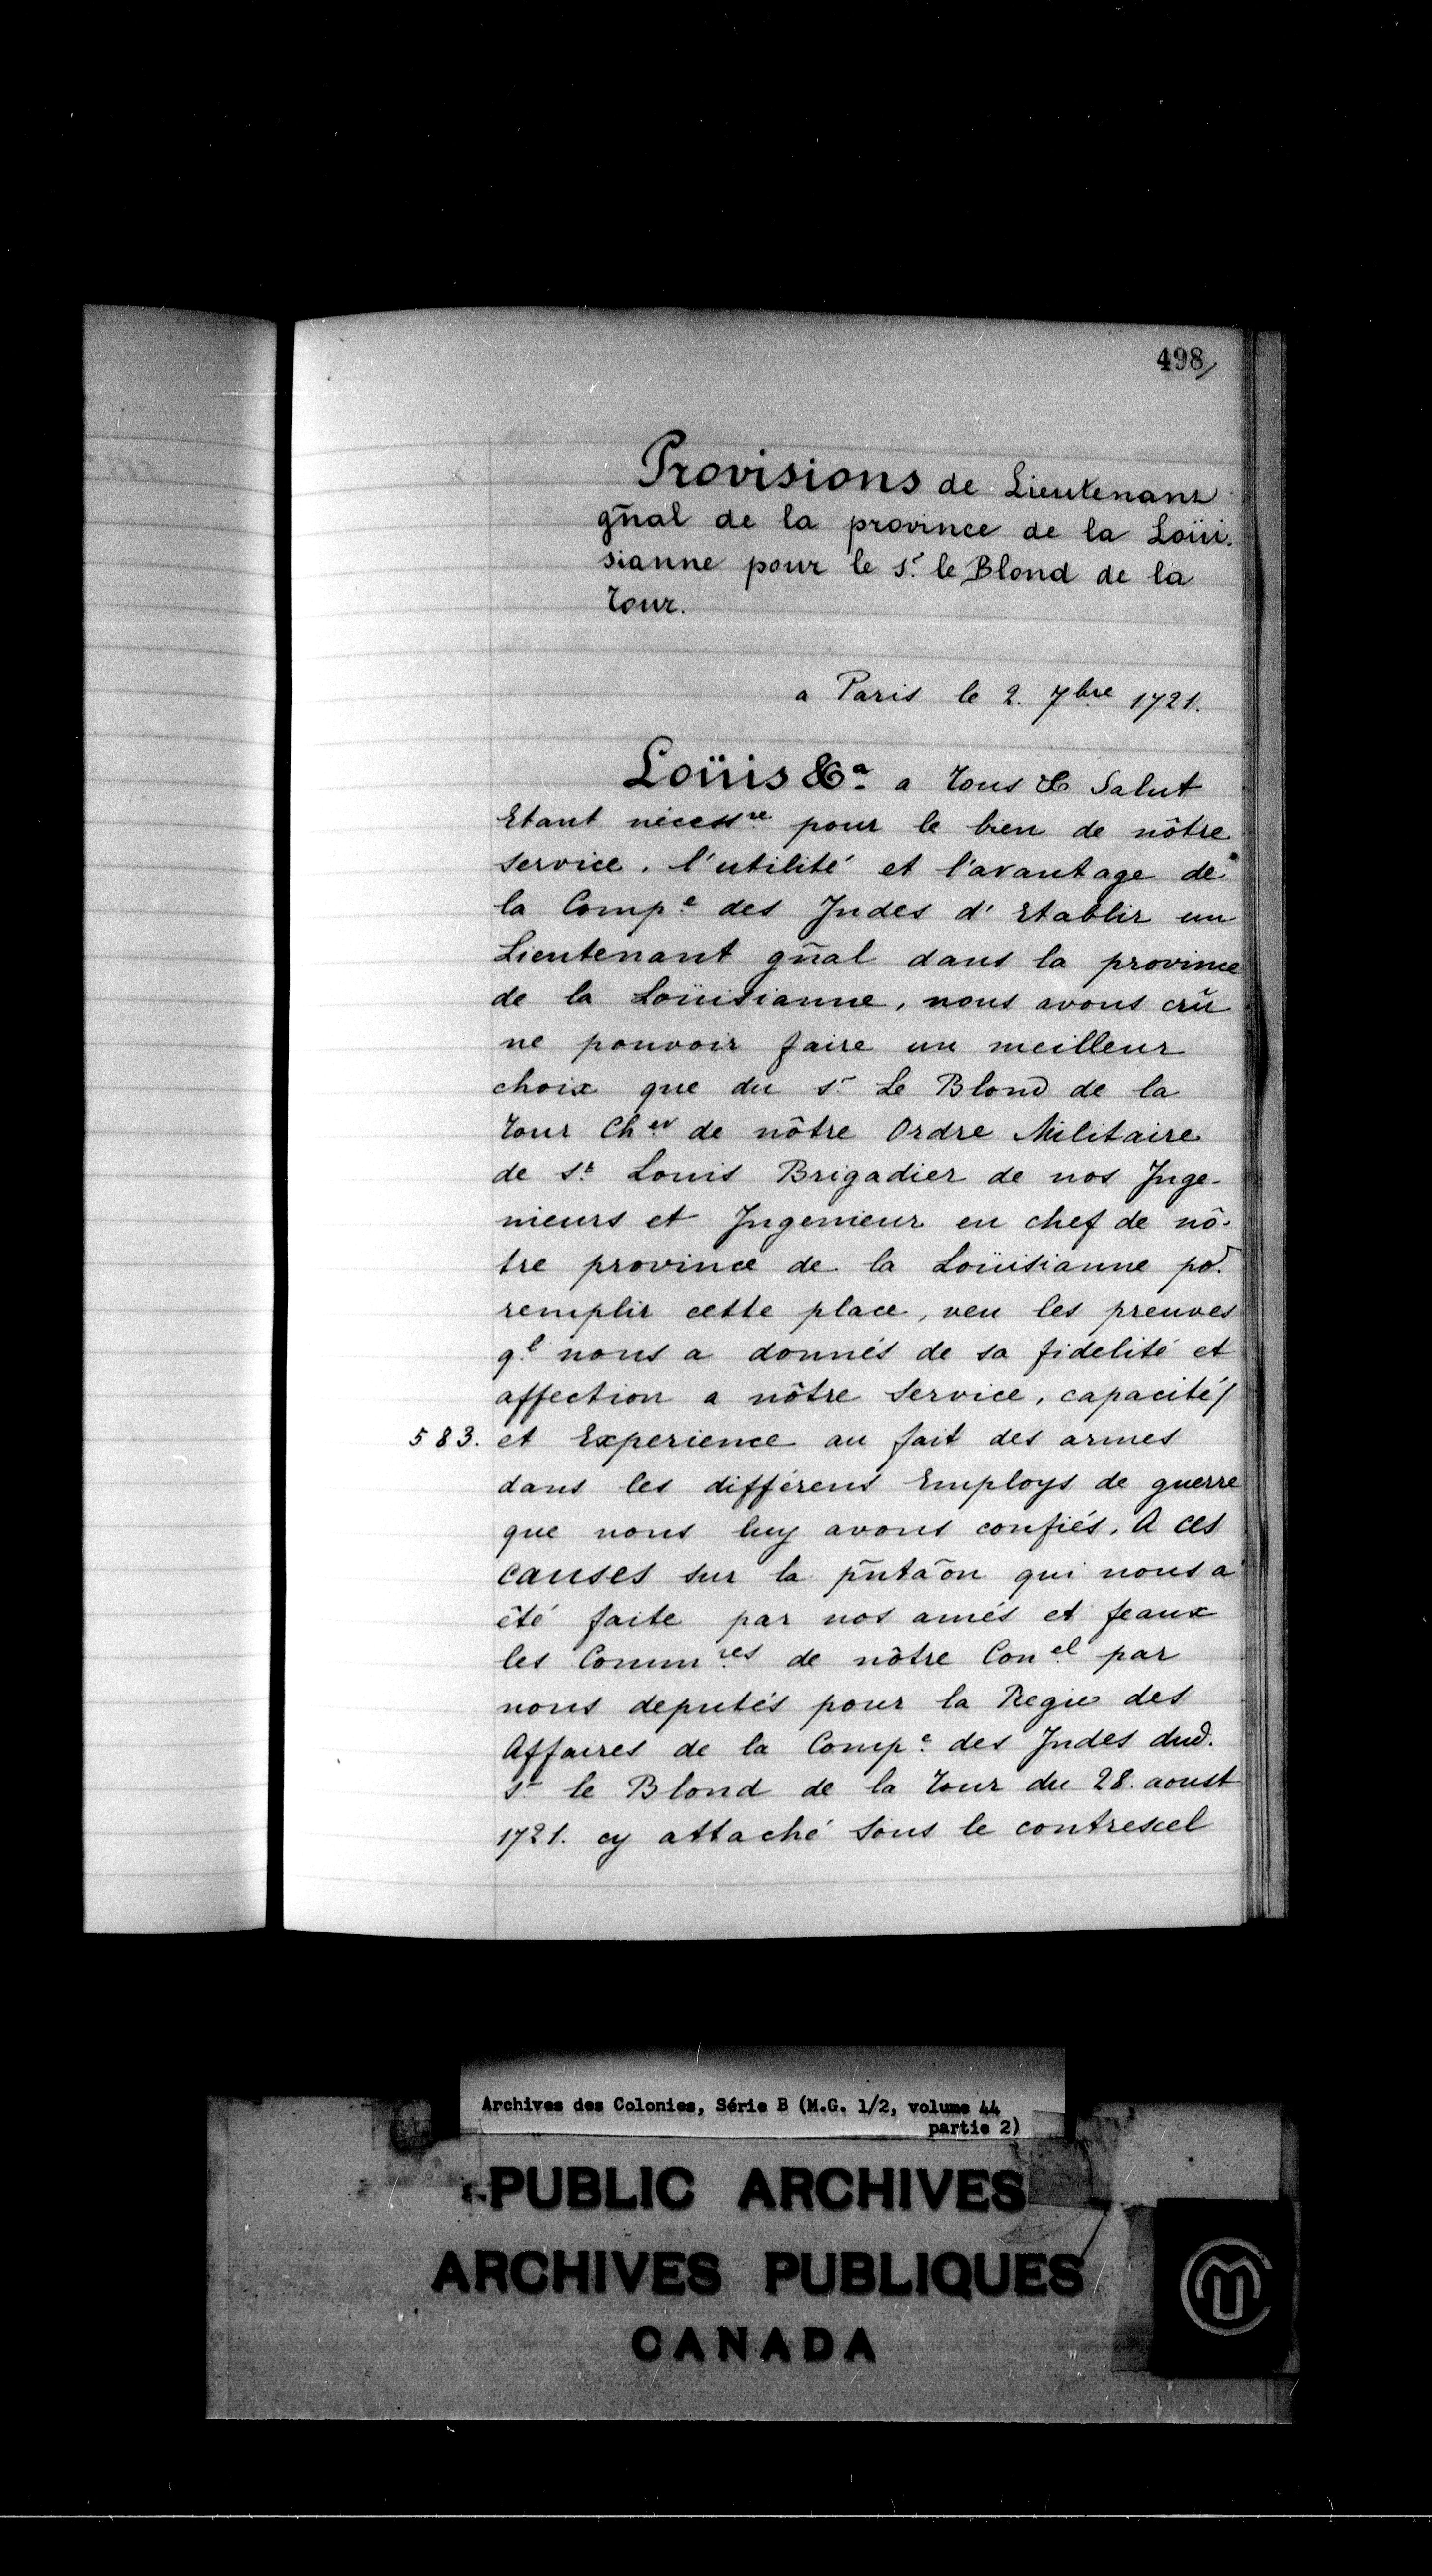 498/
Provisions de Lieutenant
gñal de la province de la Loüi-
sianne pour le Sr. le Blond de la
Tour.
a Paris le 2. 7bre 1721.
Loüis &a a Tous & Salut
Etant necessre pour le bien de nôtre
service, l'utilité et l'avantage de
la Compe des Indes d'Etablir un
Lieutenant gñal dans la province
de la Loüisianne, nous avons crû
ne pouvoir faire un meilleur
choix que du Sr Le Blond de la
Tour Cher de nôtre Ordre Militaire
de St Louis Brigadier de nos Inge-
nieurs et Ingenieur en chef de nô-
tre province de la Loüisianne po.
remplir cette place, veu les preuves
ql nous a donnés de sa fidelité et
affection a nôtre Service, capacité/
583. et Experience au fait des armes
dans les différens Employs de guerre
que nous luy avons confiés. A ces
causes sur la pñtãon qui nous a
été faite par nos amés et feaux
les Commres de nôtre Conel par
nous deputés pour la Regie des
Affaires de la Compe des Indes dud.
Sr le Blond de la Tour du 28. aoust
1721. cy attaché Sous le contrescel
Archives des Colonies, Série B (M.G. 1/2, volume 44
partie 2)
PUBLIC ARCHIVES
ARCHIVES PUBLIQUES
CANADA